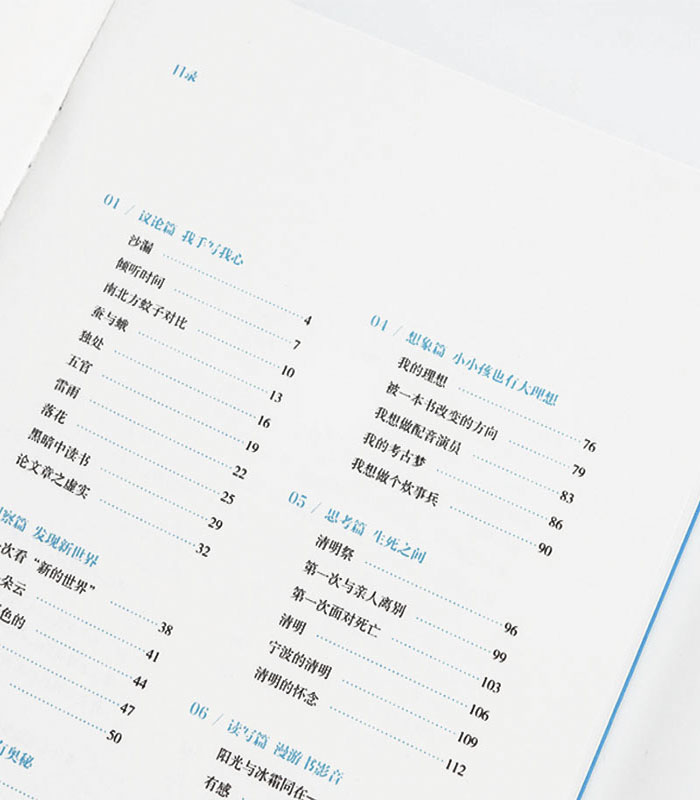 目录
01 / 议论篇 我手写我心
沙漏 4
倾听时间 7
南北方蚊子对比 10
蚕与蛾 13
独处 16
五官 19
雷雨 22
落花 25
黑暗中读书 29
论文章之虚实 32
察篇 发现新世界
次看“新的世界” 38
朵云 41
色的 44
47
50
奥秘
04 / 想象篇 小小孩也有大理想
我的理想 76
被一本书改变的方向 79
我想做配音演员 83
我的考古梦 86
我想做个炊事兵 90
05 / 思考篇 生死之间
清明祭 96
第一次与亲人离别 99
第一次面对死亡 103
清明 106
宁波的清明 109
清明的怀念 112
06 / 读写篇 漫游书影音
阳光与冰霜同在—
有感